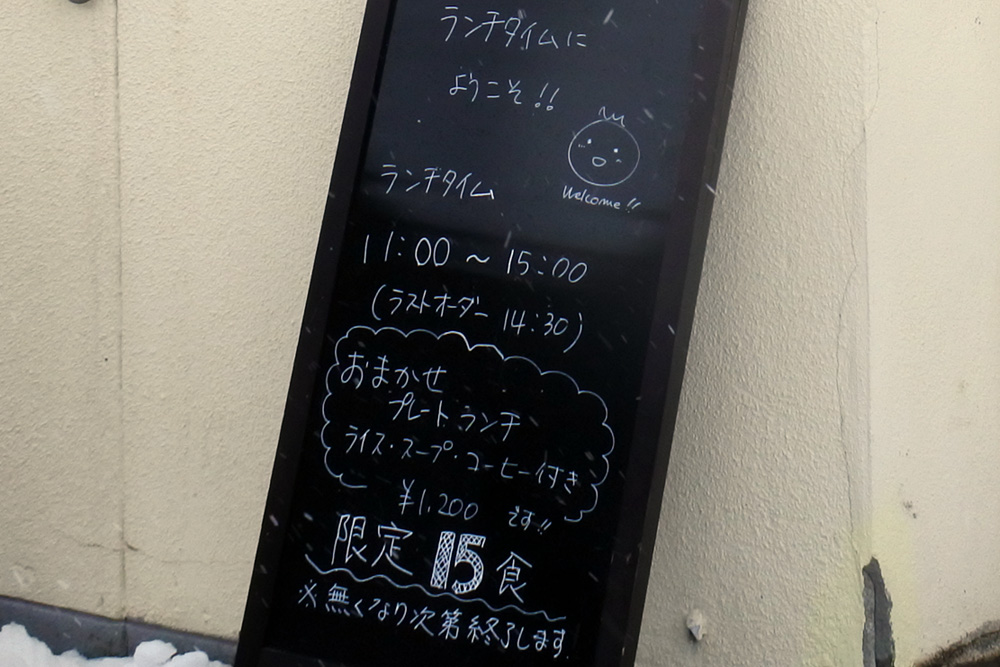 ランチタイムに
ようこそ!!
Welcome!!
ランチタイム
11:00 ~ 15:00
(ラストオーダー 14:30)
おまかせ
プレートランチ
ライス・スープ・コーヒー付き
¥1,200 です!!
限定 15食
※無くなり次第終了します